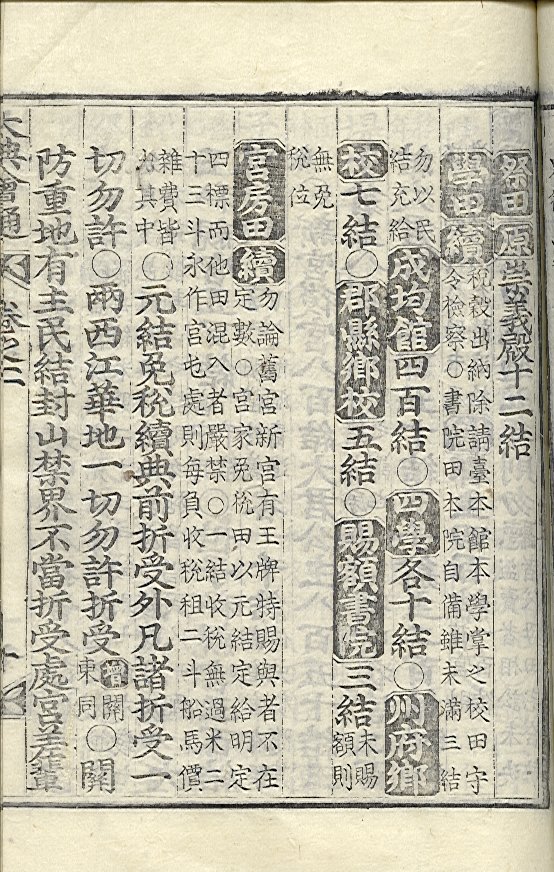 祭田 原 崇義殿十二結
學田 續 稅穀出納除請臺本館本學掌之校田守
令檢察〇書院田本院自備雖未滿三結
勿以民
結充給 成均館四百結〇四學各十結〇州府鄕
校七結〇郡縣鄕校五結〇賜額書院三結 未賜
額則
無免
稅位
宮房田 續 勿論舊宮新宮有王牌特賜與者不在
定數〇宮家免稅田以元結定給明定
四標而他田混入者嚴禁〇一結收稅無過米二
十三斗永作宮屯處則每負收稅租二斗船馬價
雜費皆
在其中 〇元結免稅續典前折受外凡諸折受一
切勿許〇兩西江華地一切勿許折受 增 關
東同 〇關
防重地有主民結封山禁界不當折受處宮差輩
大典會通 卷之二 十